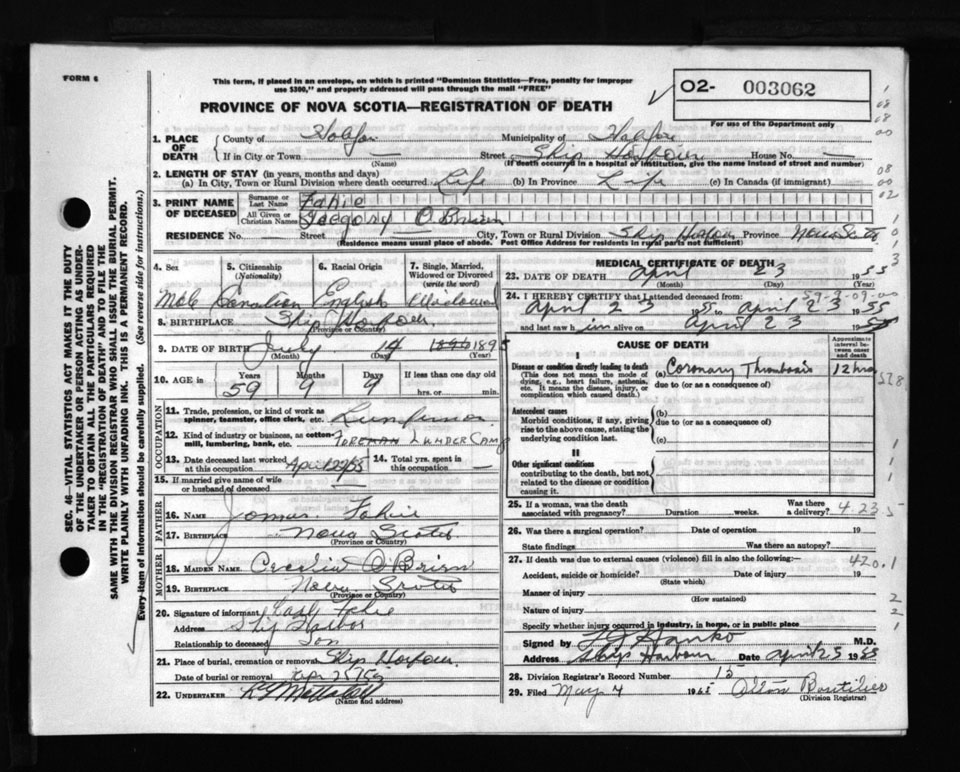 FORM 6
This form, if placed in an envelope, on which is printed "Dominion Statistics—Free, penalty for improper
use $300," and properly addressed will pass through the mail "FREE"
O2- 003062
For use of the Department only
PROVINCE OF NOVA SCOTIA—REGISTRATION OF DEATH
1. PLACE OF DEATH
County of Halifax Municipality of Halifax
If in City or Town — Street Ship Harbour House No. —
(Name) (If death occurred in a hospital of institution, give the name instead of street and number)
2. LENGTH OF STAY (in years, months and days)
(a) In City, Town or Rural Division where death occurred Life (b) In Province Life (c) In Canada (if immigrant)
3. PRINT NAME OF DECEASED
Surname or Last Name Fahie
All Given or Christian Names Gregory O'Brien
RESIDENCE No. — Street City, Town or Rural Division Ship Harbour Province Nova Scotia
(Residence means usual place of abode. Post Office Address for residents in rural parts not sufficient)
4. Sex Male
5. Citizenship (Nationality) Canadian
6. Racial Origin English
7. Single, Married, Widowed or Divorced (write the word) Widowed
8. BIRTHPLACE Ship Harbour
(Province or Country)
9. DATE OF BIRTH July 14 1896 1895
(Month) (Day) (Year)
10. AGE in Years 59 Months 9 Days 9 If less than one day old
hrs. or min.
OCCUPATION
11. Trade, profession, or kind of work as
spinner, teamster, office clerk, etc. Lumberman
12. Kind of industry or business, as cotton-
mill, lumbering, bank, etc. FOREMAN LUMBER CAMP
13. Date deceased last worked
at this occupation April 22/55
14. Total yrs. spent in
this occupation —
15. If married give name of wife
or husband of deceased —
FATHER
16. NAME James Fahie
17. BIRTHPLACE Nova Scotia
(Province or Country)
MOTHER
18. MAIDEN NAME O'Brien
19. BIRTHPLACE Nova Scotia
(Province or Country)
20. Signature of informant Fahie
Address Ship Harbor
Relationship to deceased Son
21. Place of burial, cremation or removal Ship Harbour.
Date of burial or removal
22. UNDERTAKER
(Name and address)
MEDICAL CERTIFICATE OF DEATH
23. DATE OF DEATH April 23 1955
(Month) (Day) (Year)
24. I HEREBY CERTIFY that I attended deceased from:
April 23 1955 to April 23 1955
and last saw h im alive on April 23 1955
CAUSE OF DEATH
Approximate interval between onset and death
I
Disease or condition directly leading to death
(This does not mean the mode of
dying, e.g., heart failure, asthenia,
etc. It means the disease, injury, or
complication which caused death.)
(a) Coronary Thrombosis 12 hrs
due to (or as a consequence of)
Antecedent causes
Morbid conditions, if any, giving
rise to the above cause, stating the
underlying condition last.
(b)
due to (or as a consequence of)
(c)
II
Other significant conditions
contributing to the death, but not
related to the disease or condition
causing it.
25. If a woman, was the death
associated with pregnancy? Duration weeks. Was there
a delivery?
4 23 5
26. Was there a surgical operation? Date of operation 19
State findings Was there an autopsy?
27. If death was due to external causes (violence) fill in also the following:
420.1
Accident, suicide or homicide? Date of injury 19
(State which)
Manner of injury
(How sustained)
Nature of injury
Specify whether injury occurred in industry, in home, or in public place
Signed by M.D.
Address Ship Harbour Date April 25 1955
28. Division Registrar's Record Number 15
29. Filed May 4 19
(Division Registrar)
SEC. 46—VITAL STATISTICS ACT MAKES IT THE DUTY
OF THE UNDERTAKER OR PERSON ACTING AS UNDER-
TAKER TO OBTAIN ALL THE PARTICULARS REQUIRED
IN THE "REGISTRATION OF DEATH" AND TO FILE THE
SAME WITH THE DIVISION REGISTRAR WHO SHALL ISSUE THE BURIAL PERMIT.
WRITE PLAINLY WITH UNFADING INK. THIS IS A PERMANENT RECORD.
Every item of information should be carefully supplied. (See reverse side for instructions.)